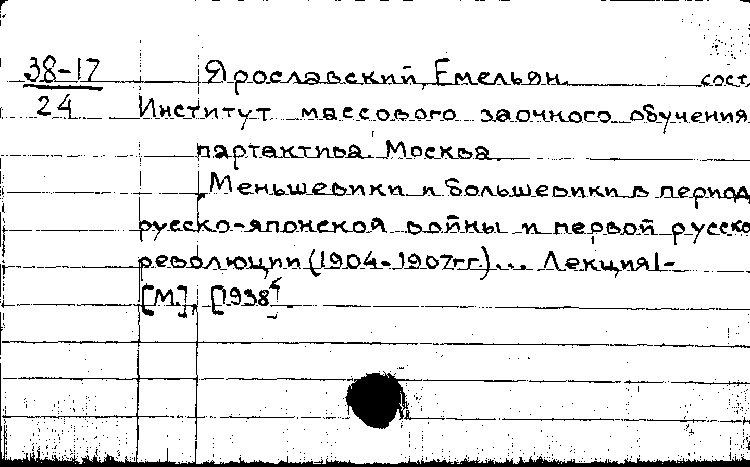 38-17 Ярославский, Емельян. сост.
24 Институт массового заочного обучения
партактива. Москва.
Меньшевики и большевики в период
русско-японской войны и первой русско
революции (1904-1907гг.)... Лекция1-
[М.], [1938].